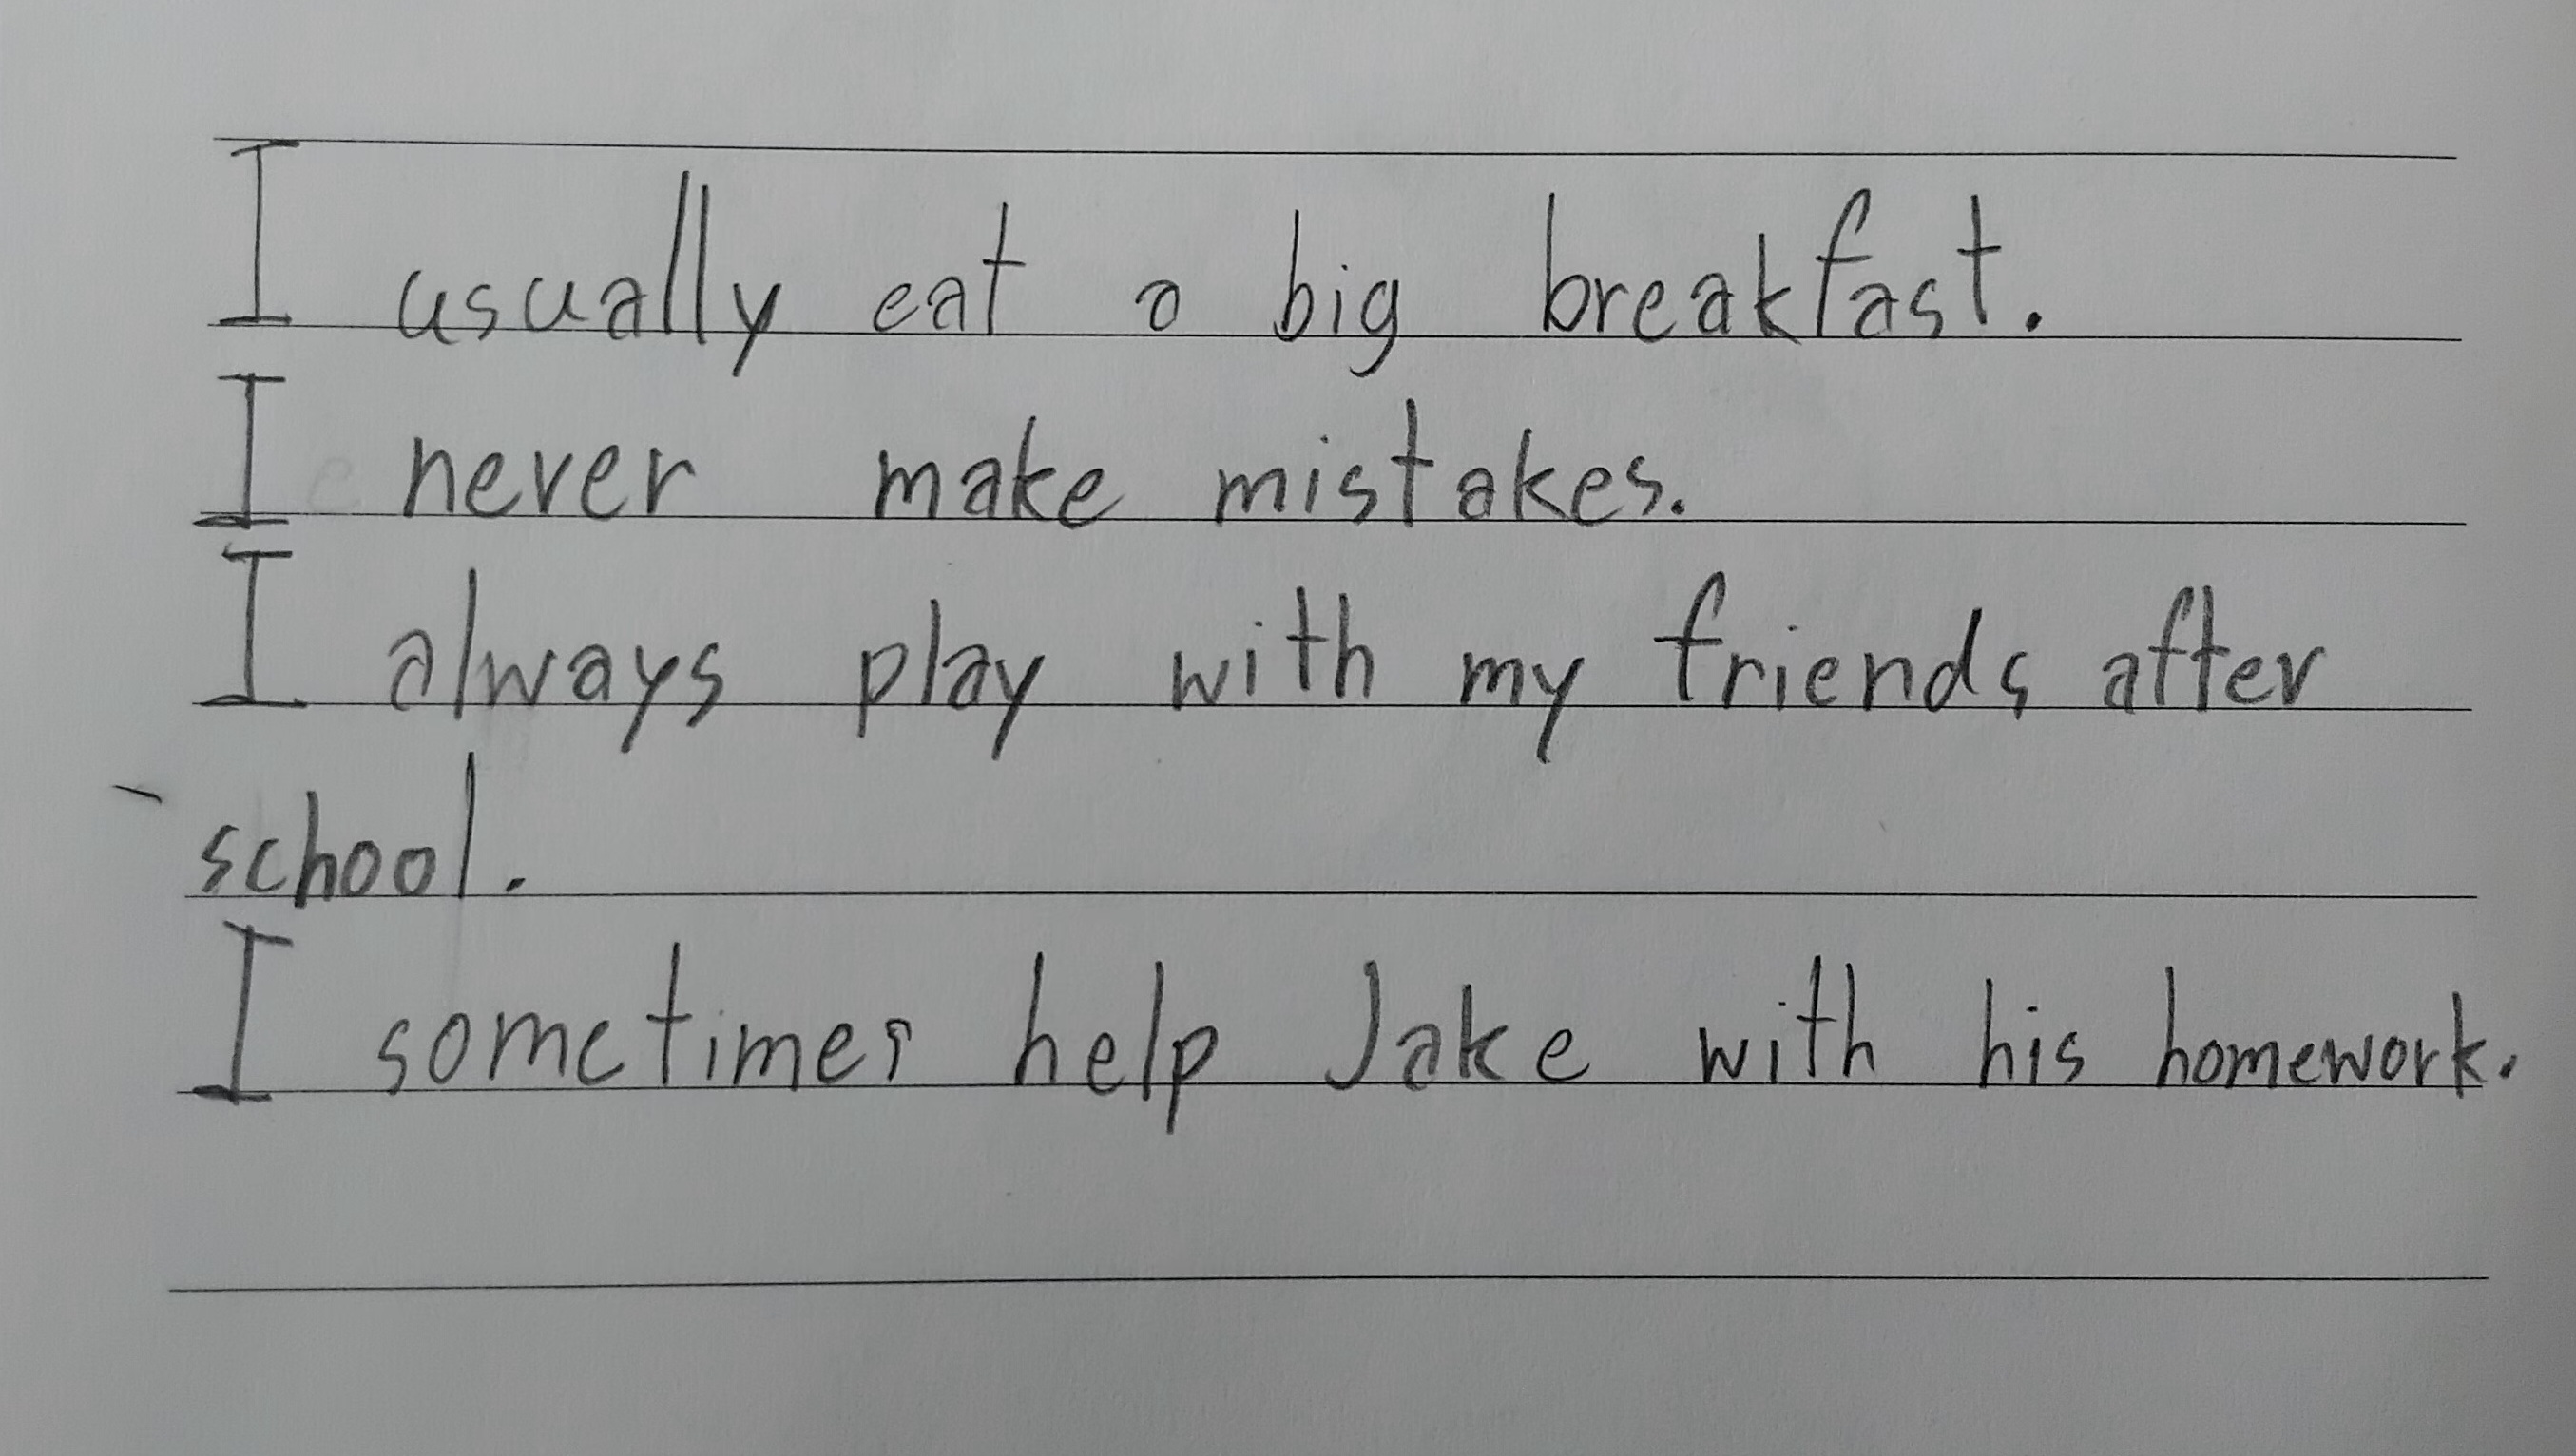 I usually eat a big breakfast.
I never make mistakes.
I always play with my friends after
school.
I sometimes help Jake with his homework.